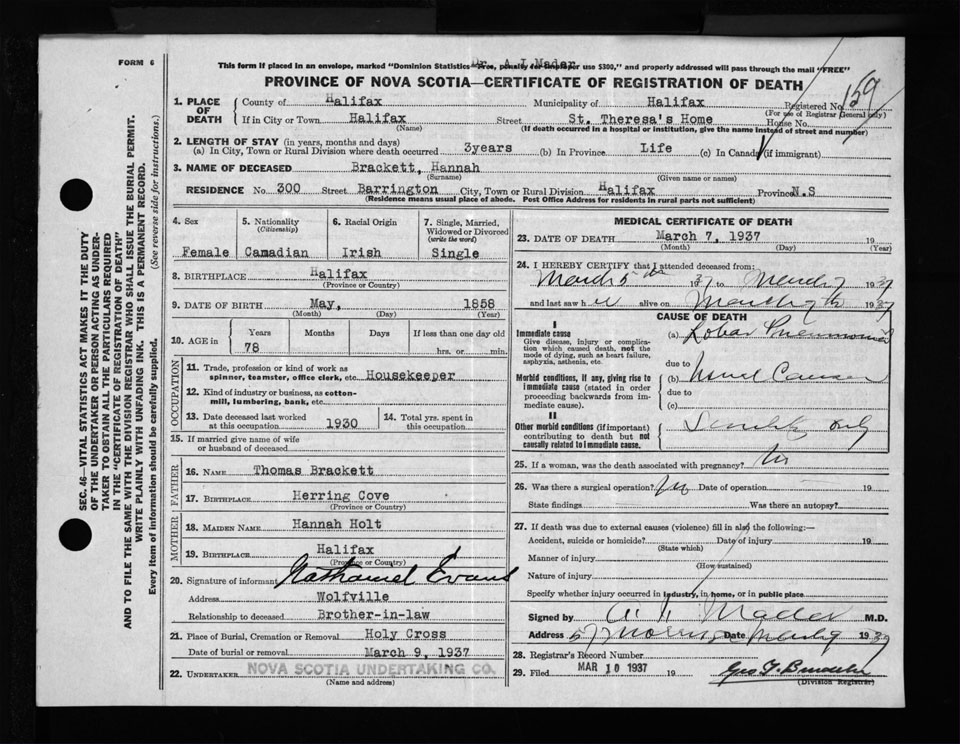 FORM 6
Dr. A I Mader
This form if placed in an envelope, marked "Dominion Statistics—Free, penalty for improper use $300," and properly addressed will pass through the mail "FREE"
PROVINCE OF NOVA SCOTIA—CERTIFICATE OF REGISTRATION OF DEATH
159
1. PLACE OF DEATH
County of Halifax Municipality of Halifax Registered No.
(For use of Registrar General only)
If in City or Town Halifax Street St. Theresa's Home House No.
(Name) (If death occurred in a hospital or institution, give the name instead of street and number)
2. LENGTH OF STAY (in years, months and days)
(a) In City, Town or Rural Division where death occurred 3years (b) In Province Life (c) In Canada (if immigrant)
3. NAME OF DECEASED Brackett, Hannah
(Surname) (Given name or names)
RESIDENCE No. 300 Street Barrington City, Town or Rural Division Halifax Province N.S
(Residence means usual place of abode. Post Office Address for residents in rural parts not sufficient)
4. Sex Female
5. Nationality (Citizenship) Canadian
6. Racial Origin Irish
7. Single, Married, Widowed or Divorced (write the word) Single
8. BIRTHPLACE Halifax
(Province or Country)
9. DATE OF BIRTH May, 1858
(Month) (Day) (Year)
10. AGE in Years 78 Months Days If less than one day old hrs. or min.
OCCUPATION
11. Trade, profession or kind of work as spinner, teamster, office clerk, etc. Housekeeper
12. Kind of industry or business, as cotton-mill, lumbering, bank, etc.
13. Date deceased last worked at this occupation 1930
14. Total yrs. spent in this occupation
15. If married give name of wife or husband of deceased
FATHER
16. NAME Thomas Brackett
17. BIRTHPLACE Herring Cove
(Province or Country)
MOTHER
18. MAIDEN NAME Hannah Holt
19. BIRTHPLACE Halifax
(Province or Country)
20. Signature of informant Nathaniel Evans
Address Wolfville
Relationship to deceased Brother-in-law
21. Place of Burial, Cremation or Removal Holy Cross
Date of burial or removal March 9, 1937
22. UNDERTAKER NOVA SCOTIA UNDERTAKING CO.
(Name and address)
MEDICAL CERTIFICATE OF DEATH
23. DATE OF DEATH March 7, 1937 19
(Month) (Day) (Year)
24. I HEREBY CERTIFY that I attended deceased from:
March 5th 1937 to March 7 1937
and last saw her alive on March 7th 1937
CAUSE OF DEATH
I
Immediate cause
Give disease, injury or complication which caused death, not the mode of dying, such as heart failure, asphyxia, asthenia, etc.
(a) Lobar Pneumonia
due to
Morbid conditions, if any, giving rise to immediate cause (stated in order proceeding backwards from immediate cause).
(b) Usual Causes
due to
(c)
II
Other morbid conditions (if important) contributing to death but not causally related to immediate cause.
Senility only
25. If a woman, was the death associated with pregnancy? No
26. Was there a surgical operation? No Date of operation 19
State findings Was there an autopsy?
27. If death was due to external causes (violence) fill in also the following:
Accident, suicide or homicide? Date of injury 19
(State which)
Manner of injury
(How sustained)
Nature of injury
Specify whether injury occurred in industry, in home, or in public place
Signed by Mader M.D.
Address 57 Morris Date 1937
28. Registrar's Record Number
29. Filed MAR 10 1937 19
(Division Registrar)
SEC. 46—VITAL STATISTICS ACT MAKES IT THE DUTY
OF THE UNDERTAKER OR PERSON ACTING AS UNDER-
TAKER TO OBTAIN ALL THE PARTICULARS REQUIRED
IN THE "CERTIFICATE OF REGISTRATION OF DEATH"
AND TO FILE THE SAME WITH THE DIVISION REGISTRAR WHO SHALL ISSUE THE BURIAL PERMIT.
WRITE PLAINLY WITH UNFADING INK. THIS IS A PERMANENT RECORD.
Every item of information should be carefully supplied. (See reverse side for instructions.)